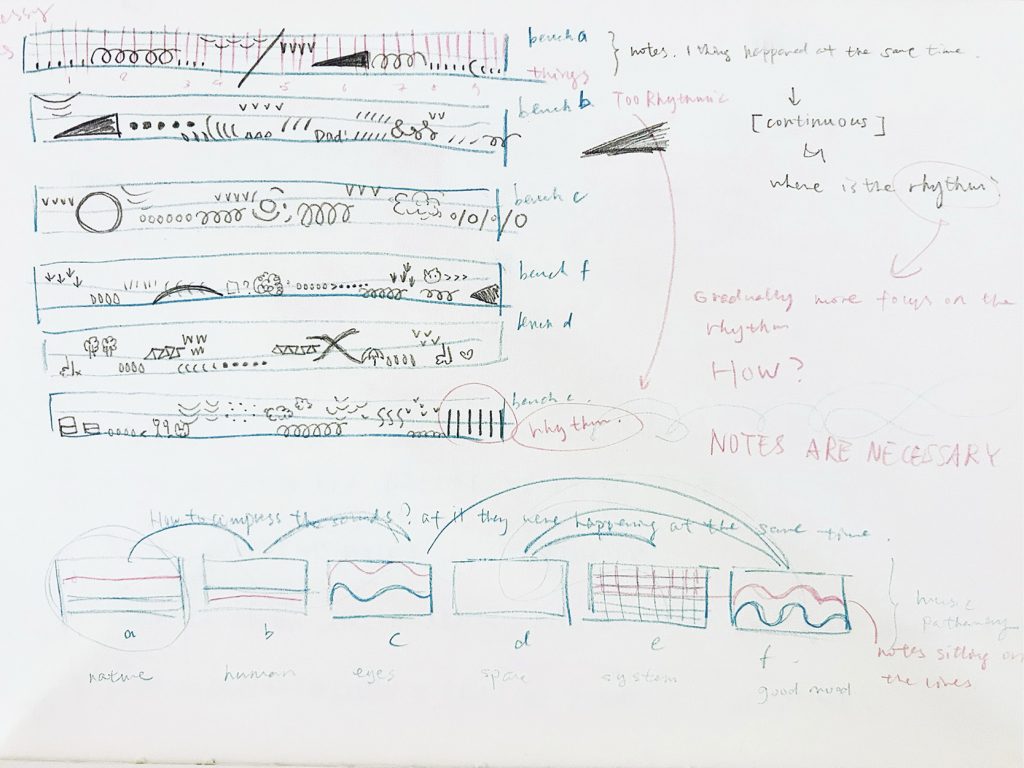 essy
bench a
notes. 1 thing happened at the same time.
things
1 2 3 4 5 6 7 8 9
bench b
Too Rhythmic
Dad!
[continuous]
where is the rhythm?
bench c
bench f
Gradually more focus on the
rhythm
bench d
HOW?
bench e.
rhythm.
NOTES ARE NECESSARY
How to compress the sounds? as if they were happening at the same time.
a b c d e f.
music
notes sitting on
the lines
nature human eyes space system good mood